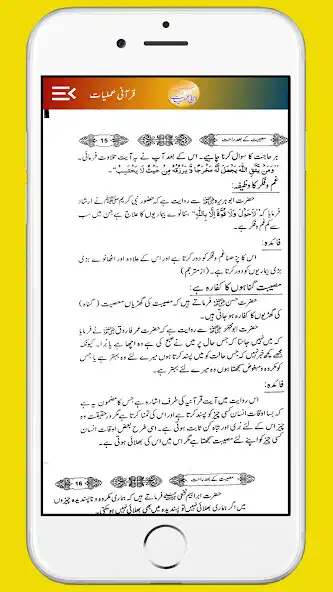 قرآنی عملیات
مصیبت کے بعد راحت 15
ہر حاجت کا سوال کرنا چاہیے۔ اس کے بعد آپ نے یہ آیت تلاوت فرمائی۔
"وَمَنْ يَتَّقِ اللّٰهَ يَجْعَلْ لَّهُ مَخْرَجًا وَّيَرْزُقْهُ مِنْ حَيْثُ لَا يَحْتَسِبُ"۔
غم وفکر کا وظیفہ:
حضرت ابوہریرہ ؓ سے روایت ہے کہ حضور نبی کریم ﷺ نے ارشاد
فرمایا کہ "لَاحَوْلَ وَلَا قُوَّةَ اِلَّا بِاللّٰهِ" ننانوے بیماریوں کا علاج ہے جن میں سب
سے کم غم وفکر ہے۔
فائدہ:
اس کا پڑھنا غم وفکر کو دور کرتا ہے اور اس کے علاوہ اور اٹھانوے بڑی
بڑی بیماریوں کو دور کرتا ہے۔ (از مترجم)
مصیبت گناہوں کا کفارہ ہے:
حضرت حسن فرماتے ہیں کہ مصیبت کی گھڑیاں معصیت (گناہ)
کی گھڑیوں کا کفارہ ہو جاتی ہیں۔
سے روایت ہے کہ حضرت عمر فاروق ؓ نے فرمایا
کہ میں نہیں جانتا کہ جس حال پر میں نے صبح کی ہے وہ اچھا ہے یا برا۔ کیونکہ
مجھے کچھ خبر نہیں کہ جس حالت کو میں پسند کرتا ہوں میرے لئے وہ بہتر ہے یا جس
کو مکروہ ومبغوض سمجھتا ہوں وہ میرے لئے بہتر ہے۔
فائدہ:
اس روایت میں آیت قرآنیہ کی طرف اشارہ ہے جس کا مضمون یہ ہے
کہ بسا اوقات انسان کسی چیز کو پسند کرتا ہے اور اس کی تمنا کرتا ہے مگر درحقیقت وہ
چیز اس کے لئے مضر اور تباہ کن ثابت ہوتی ہے۔ اسی طرح بعض اوقات انسان
کسی چیز کو اپنے لئے مصیبت سمجھتا ہے مگر اس میں اس کی بھلائی ہوتی ہے۔
مصیبت کے بعد راحت 16
حضرت ابراہیم فرماتے ہیں کہ ہماری مکروہ و ناپسندیدہ چیزوں
میں اگر ہماری بھلائی نہیں تو پسندیدہ میں بھی بھلائی نہیں ہو سکتی۔